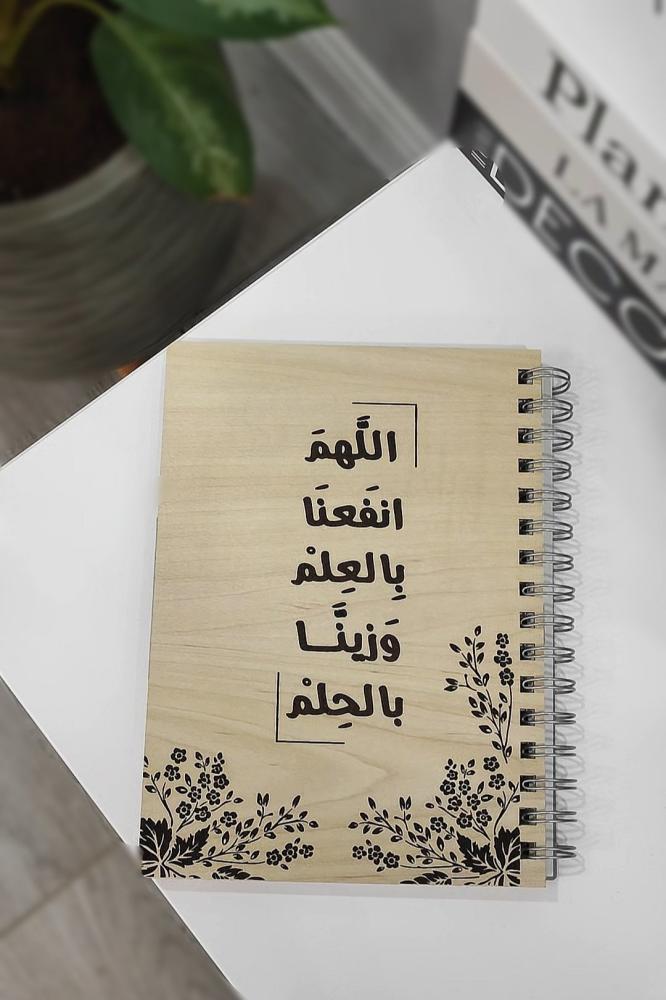 اللَّهمَ
انفَعنَا
بِالعِلمْ
وَزينَّــا
بالحِلمْ
Plan
LA MA
DECO